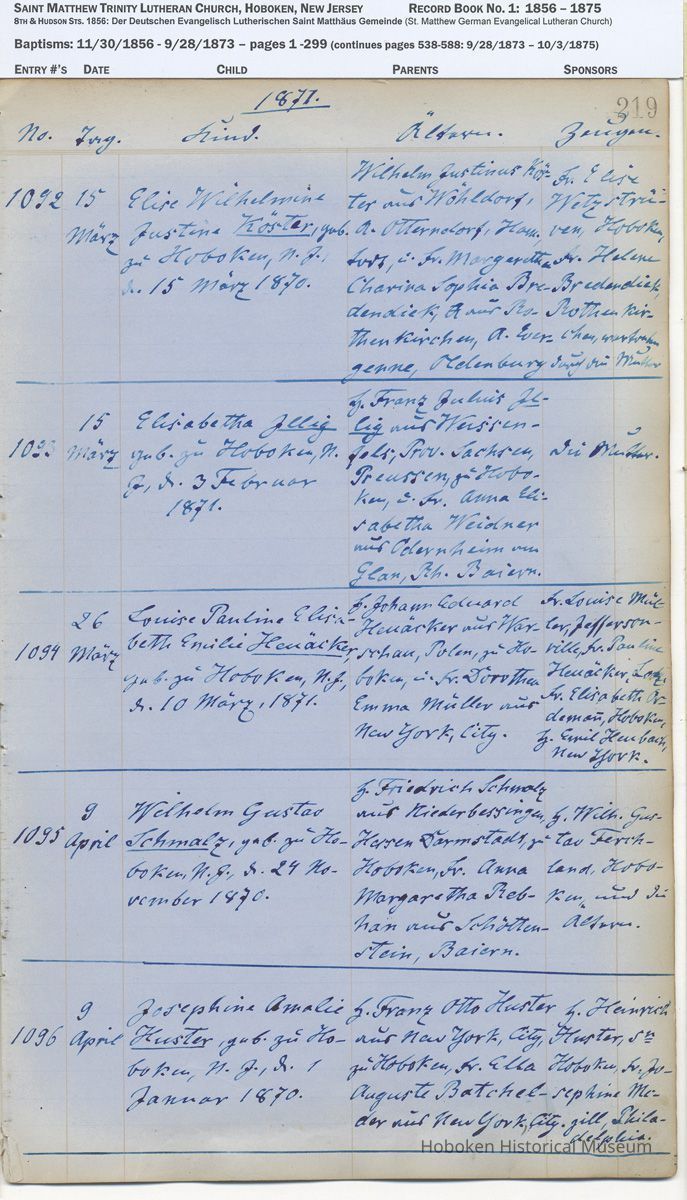 SAINT MATTHEW TRINITY LUTHERAN CHURCH, HOBOKEN, NEW JERSEY RECORD BOOK NO. 1: 1856 – 1875
8TH & HUDSON STS. 1856: Der Deutschen Evangelisch Lutherischen Saint Matthäus Gemeinde (St. Matthew German Evangelical Lutheran Church)
Baptisms: 11/30/1856 - 9/28/1873 – pages 1 -299 (continues pages 538-588: 9/28/1873 – 10/3/1875)
ENTRY #'S DATE CHILD PARENTS SPONSORS
1871.
219
No. Tag. Kind. Ältern. Zeugen.
1092
15
März
Elise Wilhelmine
Justine Köster, geb.
zu Hoboken, N. J.,
d. 15 März 1870.
Wilhelm Justinus Kös-
ter aus Wöhldorf,
A. Otterndorf, Han.
u. Fr. Margaretha
Sophia Bre-
dendiek, aus Ro-
thenkirchen, A.
genne, Oldenburg
Fr. Elise
ven, Hoboken,
Fr. Helene
Bredendiek,
Rothenkir-
chen,
durch die Mutter
1093
15
März
Elisabetha Illig
geb. zu Hoboken, N.
J., d. 3 Februar
1871.
H. Franz Julius Il-
lig aus Weissen-
fels, Prov. Sachsen,
Preussen, zu Hobo-
ken, u. Fr. Anna Eli-
sabetha Weidner
aus Odernheim am
Glan, Rh. Baiern.
die Mutter.
1094
26
März
Louise Pauline Elisa-
beth Emilie Heuäcker,
geb. zu Hoboken, N. J.,
d. 10 März, 1871.
H. Johann Eduard
Heuäcker aus War-
schau, Polen, zu Ho-
boken, u. Fr. Dorothea
Emma Müller aus
New York, City.
Fr. Louise Mül-
ler, Jefferson-
ville, Fr. Pauline
Heuäcker,
Fr. Elisabeth Or-
demañ, Hoboken,
H. Emil Heubach,
New York.
1095
9
April
Wilhelm Gustav
Schmalz, geb. zu Ho-
boken, N. J., d. 24 No-
vember 1870.
H. Friedrich Schmalz
aus Niederbessingen,
Hessen Darmstadt, zu
Hoboken, Fr. Anna
Margaretha Reb-
han aus Schötten-
stein, Baiern.
H. Wilh. Gus-
tav Ferch-
land, Hobo-
ken, und die
Ältern.
1096
9
April
Josephine Amalie
Huster, geb. zu Ho-
boken, N. J., d. 1
Januar 1870.
H. Franz Otto Huster
aus New York, City,
zu Hoboken, Fr. Ella
Auguste Batchel-
der aus New York, City.
H. Heinrich
Huster, sn
Hoboken, Fr. Jo-
sephine Me-
gill, Phila-
delphia.
Hoboken Historical Museum